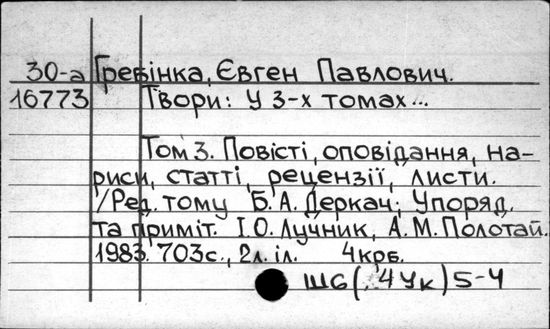 30-а Гребінка, Євген Павлович.
16773 Твори: У 3-х томах...
Том 3. Повісті, оповідання, на-
риси, статті, рецензії, листи.
/Ред. тому Б.А. Деркач; Упоряд.
та приміт. І.О. Лучник, А.М. Полотай.
1983. 703с., 2л. іл. 4крб.
Ш6(.4Ук)5-4